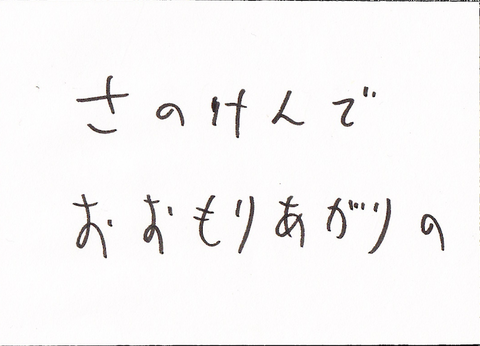 さのけんで
おおもりあがりの